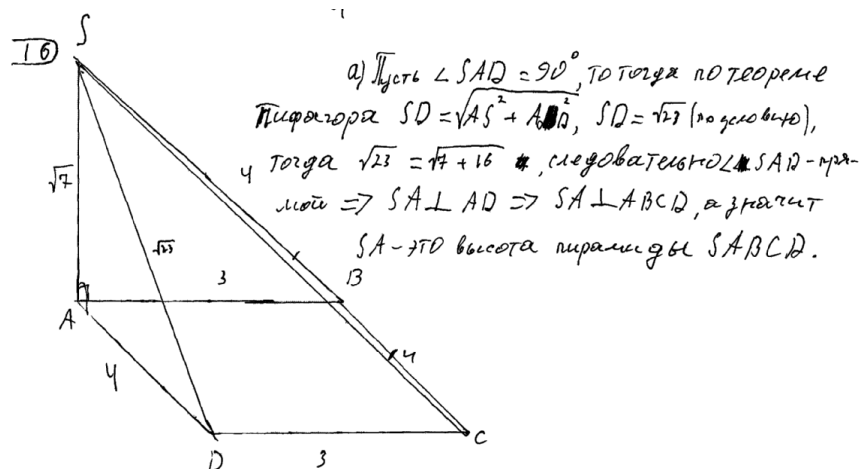 16
S
а) Пусть ∠SAD = 90°, то тогда по теореме
Пифагора SD = √AS² + AD², SD = √23 (по условию),
тогда √23 = √7 + 16, следовательно ∠SAD - пря-
мой => SA ⊥ AD => SA ⊥ ABCD, а значит
SA - это высота пирамиды SABCD.
√7
4
√23
3
B
A
4
4
D
3
C